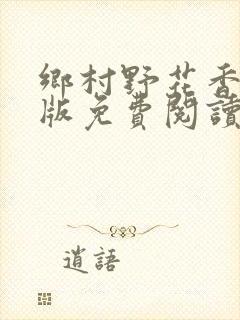 鄉村野花香
版免費閱讀
逍語